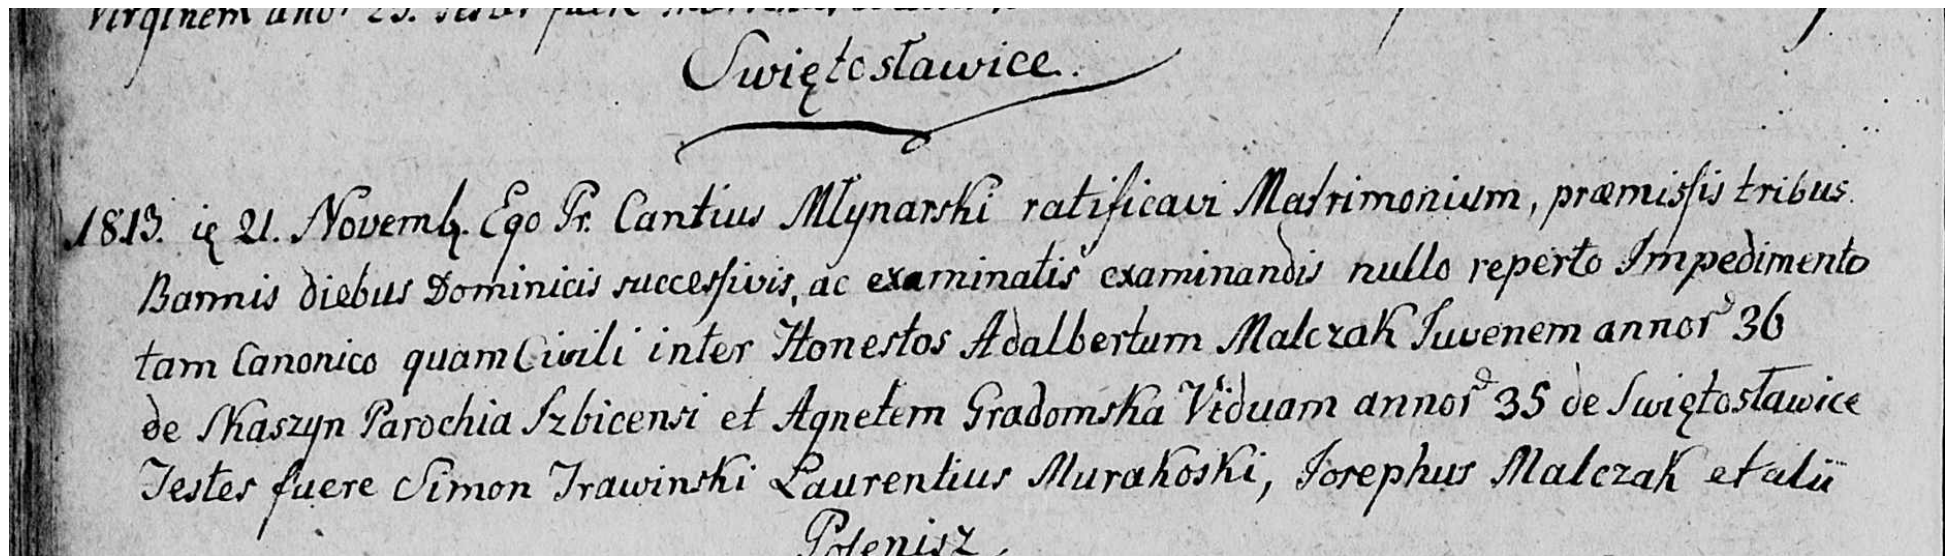 Virginem anor 23. Testes fuere
Swiętosławice.
1813. ię 21. Novemb. Ego Fr. Cantius Młynarski ratificavi Matrimonium, præmissis tribus
Bannis diebus Dominicis successivis, ac examinatis examinandis nullo reperto Impedimento
tam Canonico quam Civili inter Honestos Adalbertum Malczak Iuvenem annor 36
de Skaszyn Parochia Izbicensi et Agnetem Gradomska Viduam annor 35 de Swiętosławice
Testes fuere Simon Trawinski Laurentius Murakoski, Iosephus Malczak et alii